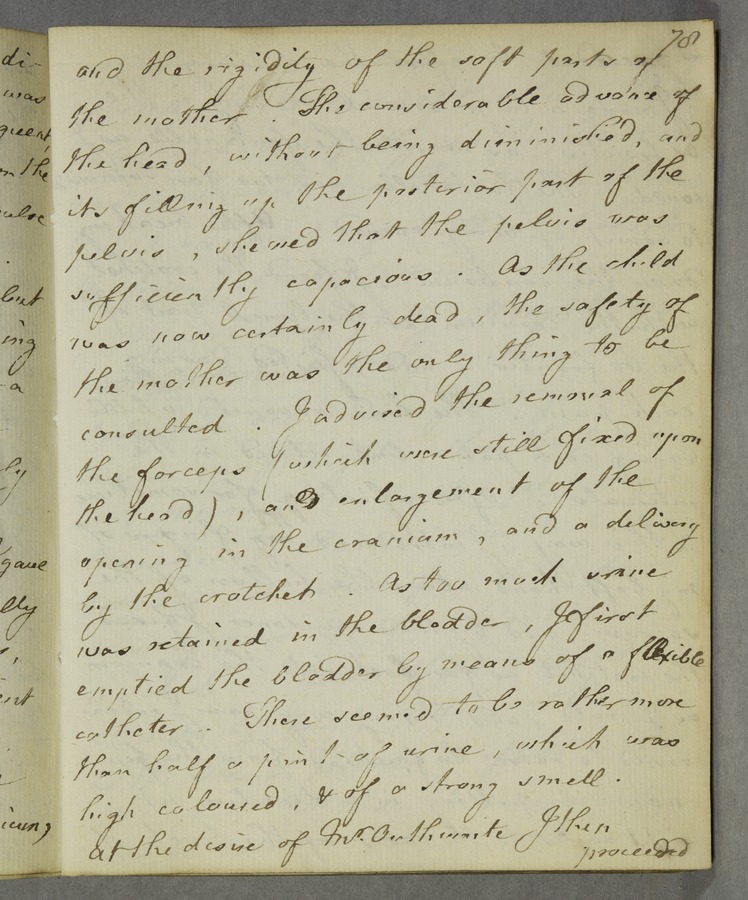 di-
was
quent,
on the
pulse
but
ing
a
ly
gave
lly
ent
78
and the rigidity of the soft parts of
the mother. The considerable advance of
the head, without being diminished, and
its filling up the posterior part of the
pelvis, shewed that the pelvis was
sufficiently capacious. As the child
was now certainly dead, the safety of
the mother was the only thing to be
consulted. I advised the removal of
the forceps (which were still fixed upon
the head), and enlargement of the
opening in the cranium, and a delivery
by the crotchet. As too much urine
was retained in the bladder, I first
emptied the bladder by means of a flexible
catheter. There seemed to be rather more
than half a pint of urine, which was
high coloured, & of a strong smell.
At the desire of Mr. Outhwaite I then
proceeded